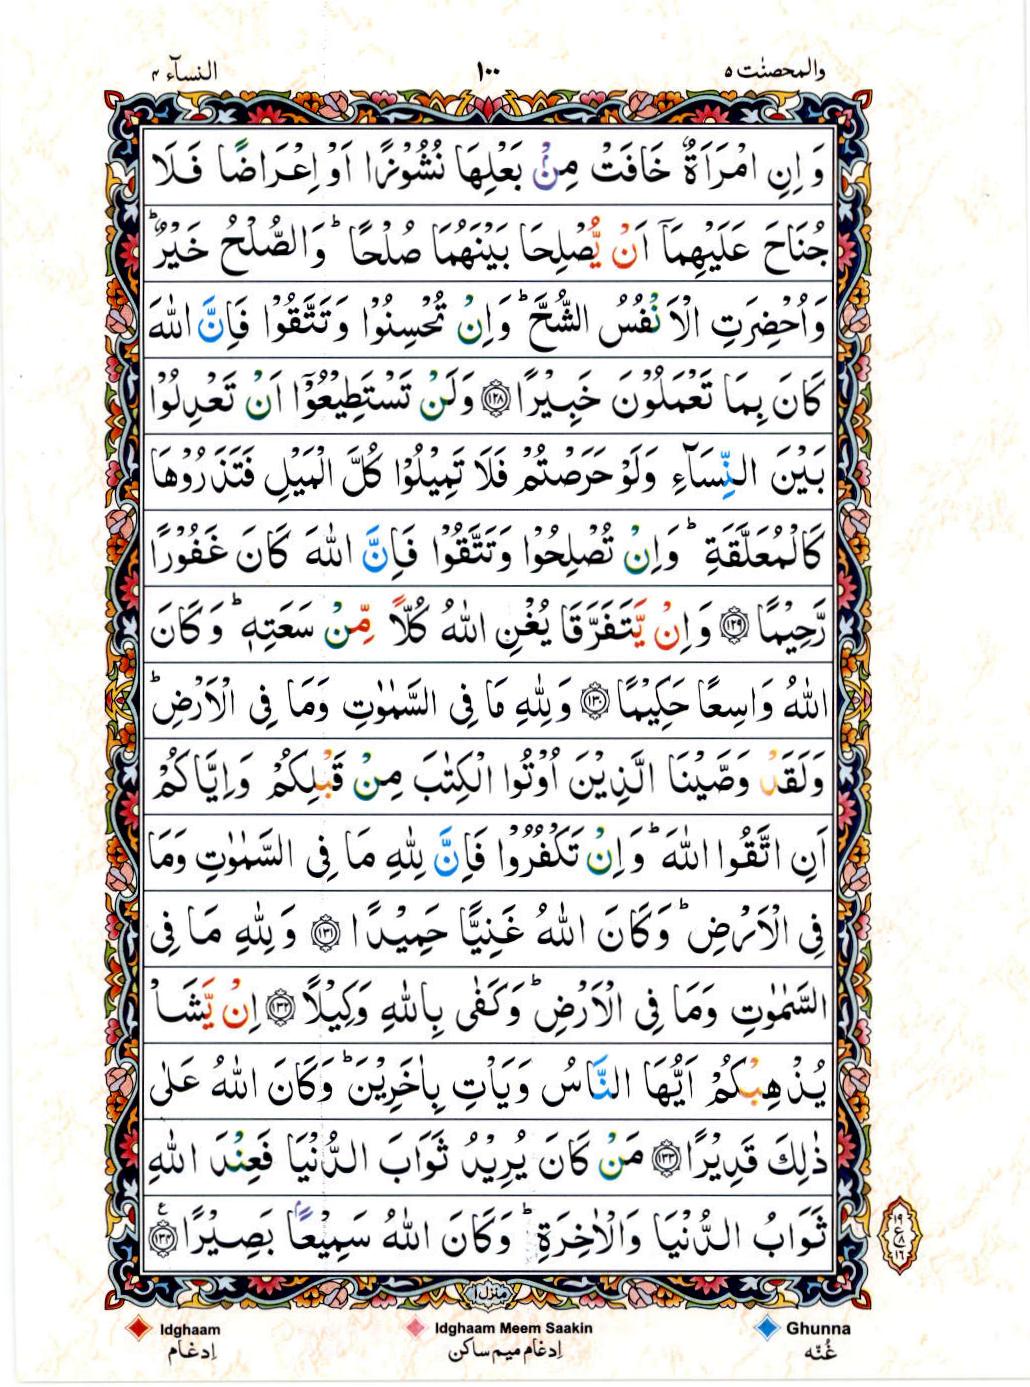 والمحصنٰت ۵
۱۰۰
النسآء ۴
وَ اِنِ امْرَاَةٌ خَافَتْ مِنْۢ بَعْلِهَا نُشُوْزًا اَوْ اِعْرَاضًا فَلَا
جُنَاحَ عَلَيْهِمَاۤ اَنْ يُّصْلِحَا بَيْنَهُمَا صُلْحًا ؕ وَالصُّلْحُ خَيْرٌ ؕ
وَاُحْضِرَتِ الْاَنْفُسُ الشُّحَّ ؕ وَاِنْ تُحْسِنُوْا وَتَتَّقُوْا فَاِنَّ اللّٰهَ
كَانَ بِمَا تَعْمَلُوْنَ خَبِيْرًا ﴿۱۲۸﴾ وَلَنْ تَسْتَطِيْعُوْۤا اَنْ تَعْدِلُوْا
بَيْنَ النِّسَآءِ وَلَوْ حَرَصْتُمْ فَلَا تَمِيْلُوْا كُلَّ الْمَيْلِ فَتَذَرُوْهَا
كَالْمُعَلَّقَةِ ؕ وَاِنْ تُصْلِحُوْا وَتَتَّقُوْا فَاِنَّ اللّٰهَ كَانَ غَفُوْرًا
رَّحِيْمًا ﴿۱۲۹﴾ وَاِنْ يَّتَفَرَّقَا يُغْنِ اللّٰهُ كُلًّا مِّنْ سَعَتِهٖ ؕ وَكَانَ
اللّٰهُ وَاسِعًا حَكِيْمًا ﴿۱۳۰﴾ وَلِلّٰهِ مَا فِى السَّمٰوٰتِ وَمَا فِى الْاَرْضِ ؕ
وَلَقَدْ وَصَّيْنَا الَّذِيْنَ اُوْتُوا الْكِتٰبَ مِنْ قَبْلِكُمْ وَاِيَّاكُمْ
اَنِ اتَّقُوا اللّٰهَ ؕ وَاِنْ تَكْفُرُوْا فَاِنَّ لِلّٰهِ مَا فِى السَّمٰوٰتِ وَمَا
فِى الْاَرْضِ ؕ وَكَانَ اللّٰهُ غَنِيًّا حَمِيْدًا ﴿۱۳۱﴾ وَلِلّٰهِ مَا فِى
السَّمٰوٰتِ وَمَا فِى الْاَرْضِ ؕ وَكَفٰى بِاللّٰهِ وَكِيْلًا ﴿۱۳۲﴾ اِنْ يَّشَاْ
يُذْهِبْكُمْ اَيُّهَا النَّاسُ وَيَاْتِ بِاٰخَرِيْنَ ؕ وَكَانَ اللّٰهُ عَلٰى
ذٰلِكَ قَدِيْرًا ﴿۱۳۳﴾ مَنْ كَانَ يُرِيْدُ ثَوَابَ الدُّنْيَا فَعِنْدَ اللّٰهِ
ثَوَابُ الدُّنْيَا وَالْاٰخِرَةِ ؕ وَكَانَ اللّٰهُ سَمِيْعًۢا بَصِيْرًا ﴿۱۳۴﴾ ع
۱۹
ع ۸
۱۶
منزل ۱
Idghaam
Idghaam Meem Saakin
Ghunna
اِدغام
اِدغام میم ساکن
غُنّه